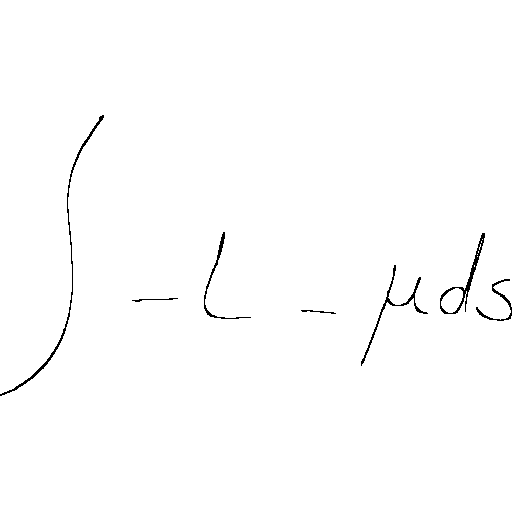 ∫ - L - μ ds